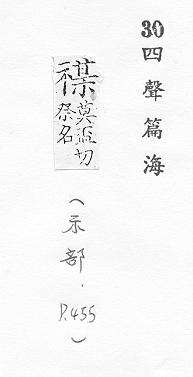 30四聲篇海
禖
莫盃切
祭名
(示部．P.455)